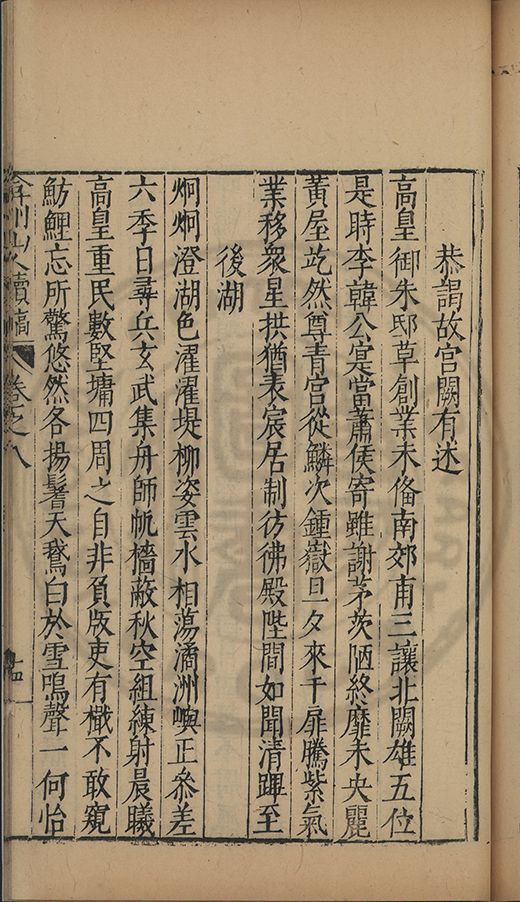 恭謁故宫闕有述
高皇御朱邸草創業未俻南郊甫三讓北闕雄五位
是時李韓公寔當蕭侯寄雖謝茅茨陋終靡未央麗
黄屋屹然尊青宫從鱗次鍾嶽旦夕來千扉騰紫氣
業移衆星拱猶表宸居制彷彿殿陛間如聞清蹕至
後湖
炯炯澄湖色濯濯堤柳姿雲水相蕩潏洲嶼正叅差
六季日尋兵玄武集舟師帆檣蔽秋空組練射晨曦
高皇重民數堅墉四周之自非負版吏有檥不敢窺
魴鯉忘所驚悠然各揚鬐天鵞白於雪鳴聲一何怡
弇州山人續稿
卷之八